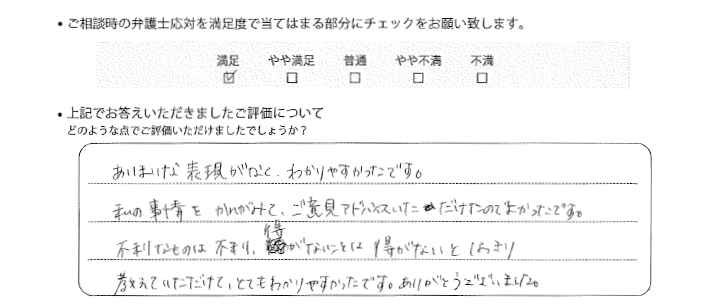 • ご相談時の弁護士応対を満足度で当てはまる部分にチェックをお願い致します。
満足 やや満足 普通 やや不満 不満
☑ □ □ □ □
• 上記でお答えいただきましたご評価について
どのような点でご評価いただけましたでしょうか？
あいまいな表現がなく、わかりやすかったです。
私の事情をかんがみて、ご意見アドバイスいただけたのでよかったです。
不利なものは不利、得がないことは得がないとはっきり
教えていただけて、とてもわかりやすかったです。ありがとうございました。